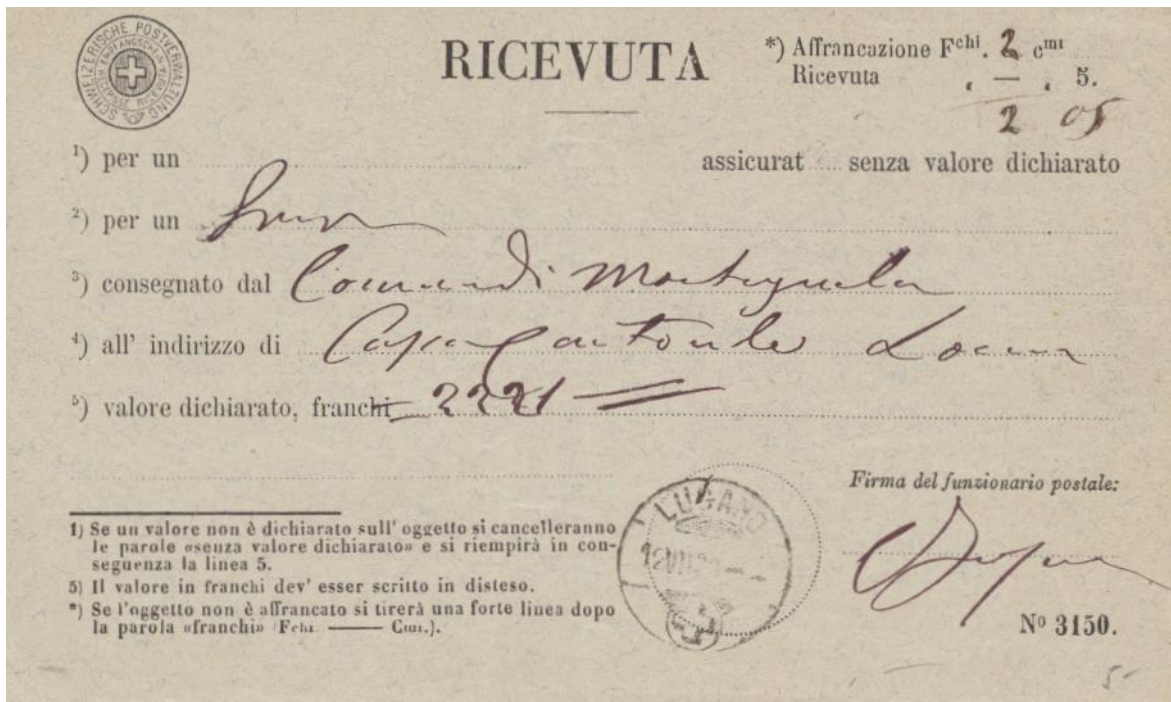 SCHWEIZERISCHE POSTVERWALTUNG
RICEVUTA
*) Affrancazione Fchi. 2 cmi
Ricevuta . — . 5.
2 05
1) per un assicurat senza valore dichiarato
2) per un
3) consegnato dal Comun di Montagnola
4) all' indirizzo di Cassa Cantonale
5) valore dichiarato, franchi 2221
Firma del funzionario postale:
LUGANO
1) Se un valore non è dichiarato sull' oggetto si cancelleranno
le parole «senza valore dichiarato» e si riempirà in con-
seguenza la linea 5.
5) Il valore in franchi dev' esser scritto in disteso.
*) Se l'oggetto non è affrancato si tirerà una forte linea dopo
la parola «franchi» (Fchi. —— Cmi.).
No 3150.
5